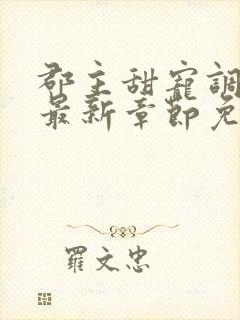 郡主甜寵調
最新章節免
羅文忠